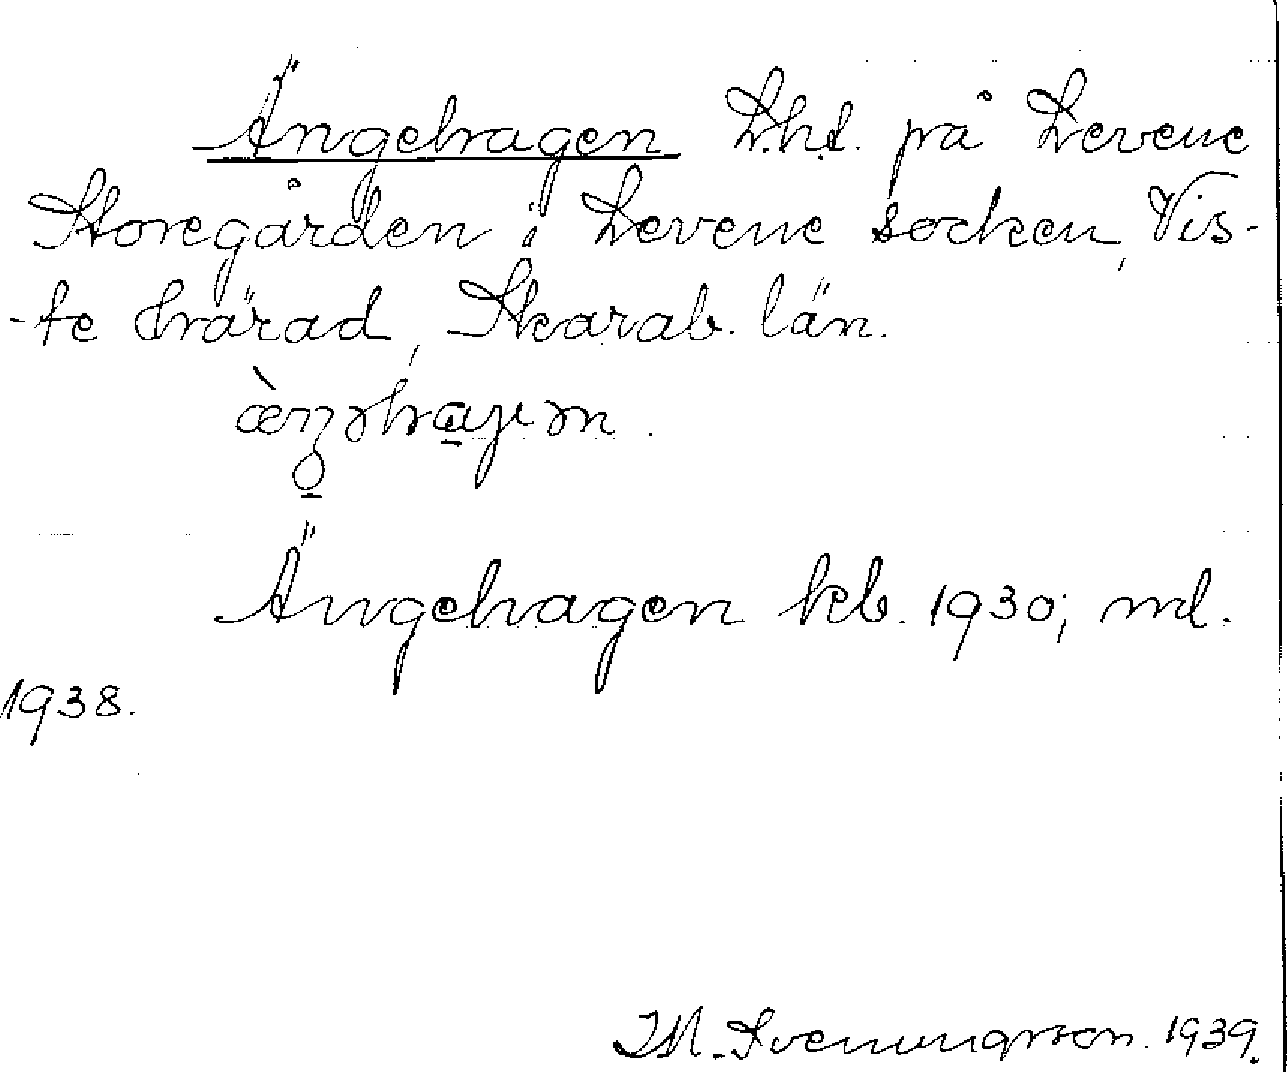 Ängehagen Lht. på Levene
Storegården i Levene socken, Vis-
-te härad, Skarab. län.
Ängehagen kb. 1930; ml.
1938.
Svenungsson. 1939.